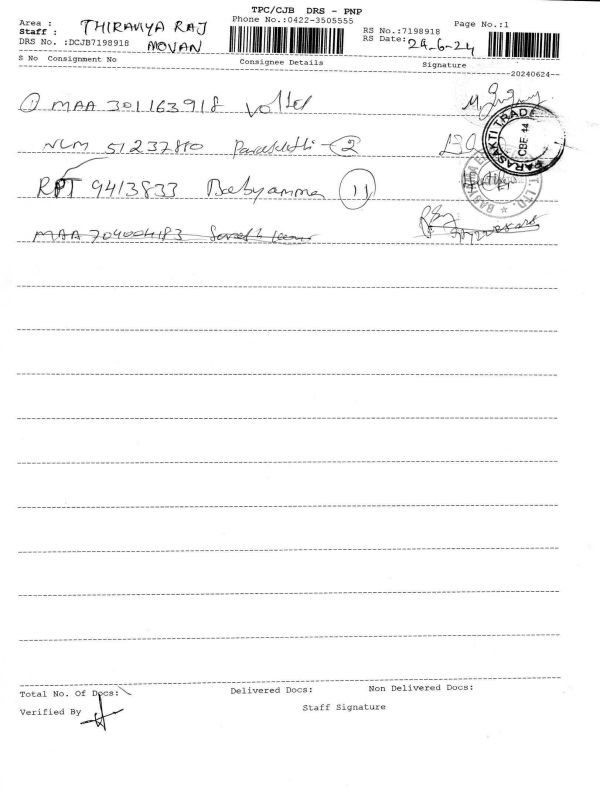 TPC/CJB DRS - PNP
Area : THIRAVYA RAJ Phone No.:0422-3505555 Page No.:1
Staff : MOVAN RS No.:7198918
DRS No. :DCJB7198918 RS Date: 24-6-24
S No Consignment No Consignee Details Signature
20240624
1 MAA 301163918 Volted
NLM 51237810 Parasakthi - 2
RPT 9413833 Babyamma 11
MAA 704004183
PARASAKTI TRADE
CBE 14
Total No. Of Docs: Delivered Docs: Non Delivered Docs:
Verified By Staff Signature